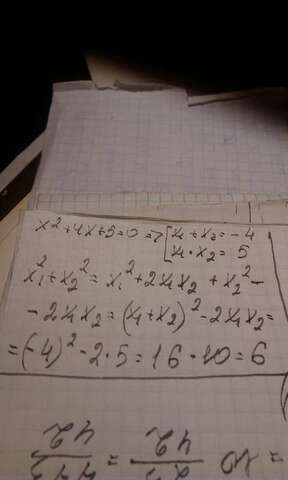 x² + 4x + 5 = 0 => [ x₁ + x₂ = -4
x₁ · x₂ = 5
x₁² + x₂² = x₁² + 2x₁x₂ + x₂² -
- 2x₁x₂ = (x₁ + x₂)² - 2x₁x₂ =
= (-4)² - 2·5 = 16 - 10 = 6